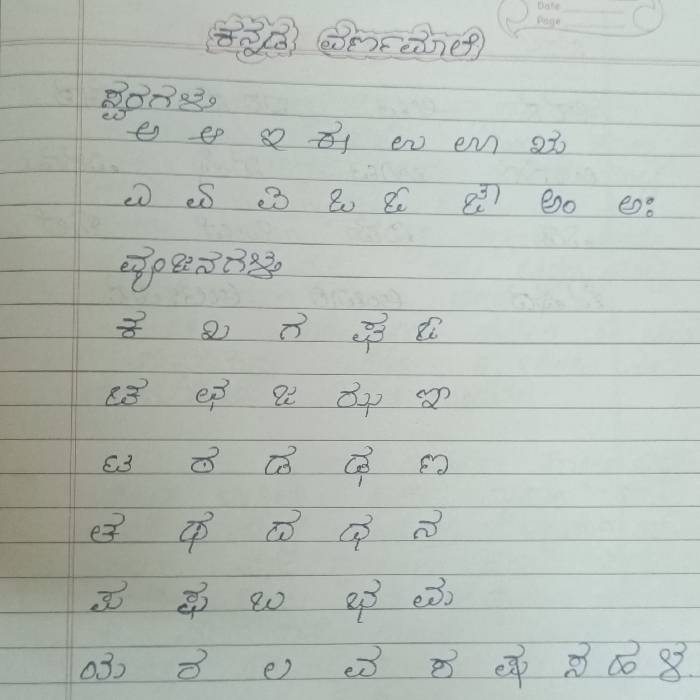 Date
Page
ಕನ್ನಡ ವರ್ಣಮಾಲೆ
ಸ್ವರಗಳು
ಅ ಆ ಇ ಈ ಉ ಊ ಋ
ಎ ಏ ಐ ಒ ಓ ಔ ಅಂ ಅಃ
ವ್ಯಂಜನಗಳು
ಕ ಖ ಗ ಘ ಙ
ಚ ಛ ಜ ಝ ಞ
ಟ ಠ ಡ ಢ ಣ
ತ ಥ ದ ಧ ನ
ಪ ಫ ಬ ಭ ಮ
ಯ ರ ಲ ವ ಶ ಷ ಸ ಹ ಳ